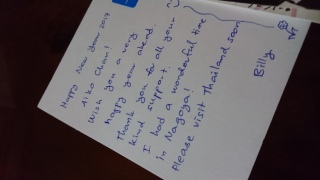 Happy New Year 2017
Aiko Chan!
Wish you a very
happy year ahead.
Thank you for all your
kind support.
I had a wonderful time
in Nagoya!
Please visit Thailand soon
Billy